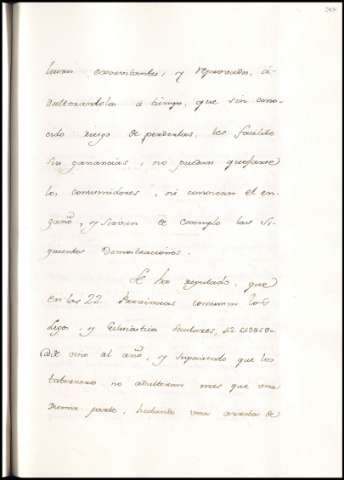 lucran exorvitantes, y reprovadas, a-
dulterandola a tiempo, que sin cono-
cido riesgo de perderlas, les facilite
sus ganancias, no pueden quejarse
los consumidores, ni conozcan el en-
gaño, y sirvan de exemplo las si-
guientes Demostraciones.
Se ha regulado, que
en las 22 Provincias consumen los
Legos, y Eclesiasticos Seculares,
de vino al año, y suponiendo que los
taberneros no adulteran mas que una
decima parte, hechando una arroba de